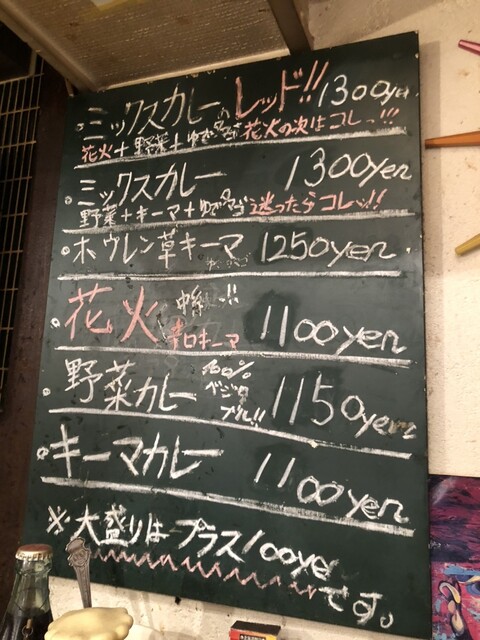 ミックスカレーのレッド!! 1300yen
花火+野菜+ゆでタマゴ 花火の次はコレっ!!!
ミックスカレー 1300yen
野菜+キーマ+ゆでタマゴ 迷ったらコレッ!!
ホウレン草キーマ 1250yen
花火 辛口キーマ 1100yen
野菜カレー 100% ベジタブル!! 1150yen
キーマカレー 1100yen
※大盛りはプラス100yen
です。